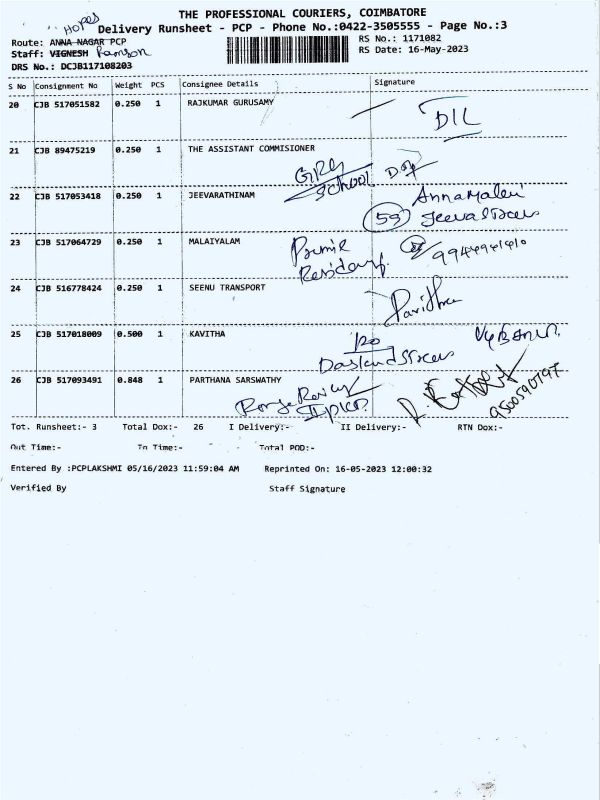 THE PROFESSIONAL COURIERS, COIMBATORE
HOPES Delivery Runsheet - PCP - Phone No.:0422-3505555 - Page No.:3
Route: ANNA NAGAR PCP RS No.: 1171082
Staff: VIGNESH RS Date: 16-May-2023
DRS No.: DCJB117108203
S No Consignment No Weight PCS Consignee Details Signature
20 CJB 517051582 0.250 1 RAJKUMAR GURUSAMY
DIL
21 CJB 89475219 0.250 1 THE ASSISTANT COMMISIONER
GRG School
22 CJB 517053418 0.250 1 JEEVARATHINAM
Annamalai
59
23 CJB 517064729 0.250 1 MALAIYALAM
Residency
24 CJB 516778424 0.250 1 SEENU TRANSPORT
Pavithra
25 CJB 517018009 0.500 1 KAVITHA
26 CJB 517093491 0.848 1 PARTHANA SARSWATHY
9500590797
Tot. Runsheet:- 3 Total Dox:- 26 I Delivery:- II Delivery:- RTN Dox:-
Out Time:- In Time:- Total POD:-
Entered By :PCPLAKSHMI 05/16/2023 11:59:04 AM Reprinted On: 16-05-2023 12:00:32
Verified By Staff Signature